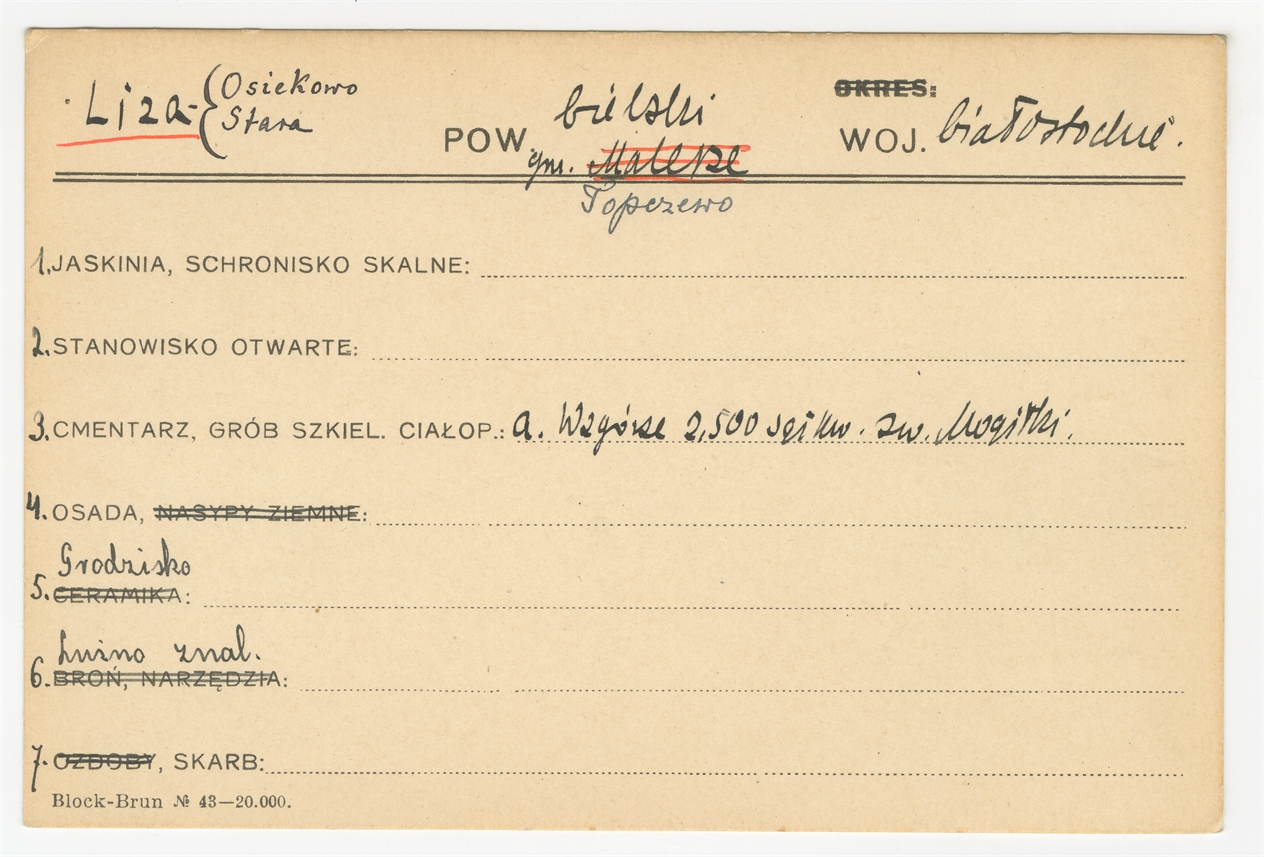 Liza - { Osiekowo
Stara
POW. bielski
OKRES:
WOJ. białostockie.
gm. Malesze
Topczewo
1. JASKINIA, SCHRONISKO SKALNE:
2. STANOWISKO OTWARTE:
3. CMENTARZ, GRÓB SZKIEL. CIAŁOP.: a. Wzgórze 2,500 sąż kw. zw. Mogiłki.
4. OSADA, NASYPY ZIEMNE:
Grodzisko
5. CERAMIKA:
Luźno znal.
6. BROŃ, NARZĘDZIA:
7. OZDOBY, SKARB:
Block-Brun № 43—20.000.